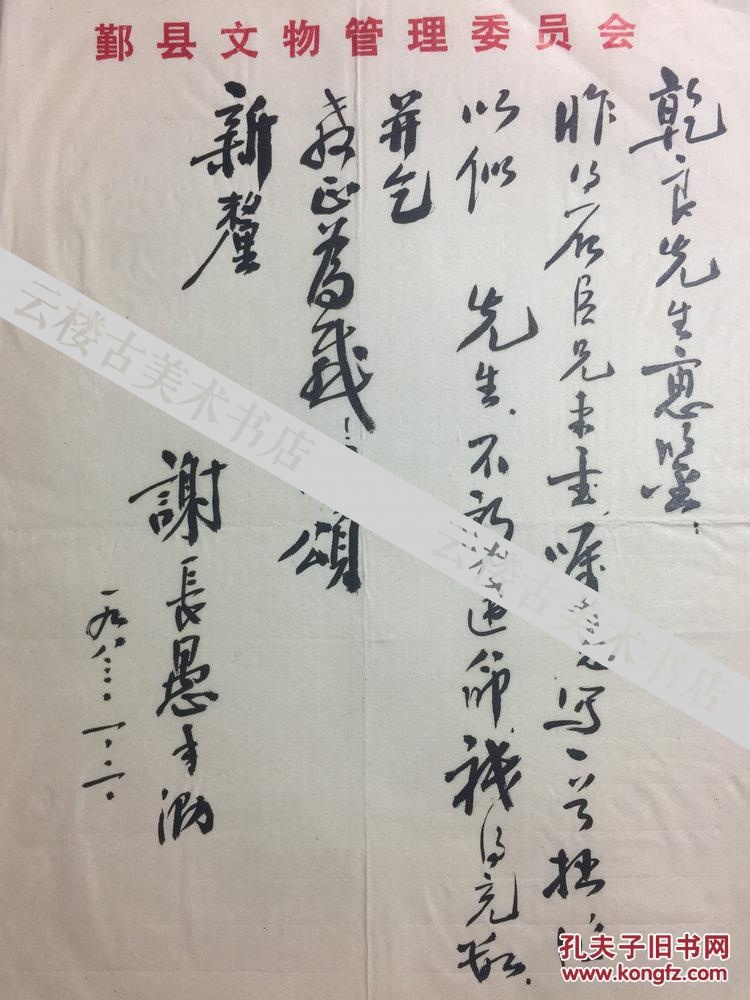 鄞县文物管理委员会
乾良先生惠鉴：
昨得石臣兄来書，嘱写一首拙
以似　先生，不敢违命，得充数，
并乞
教正为感！颂
新釐
謝長愚手泐
一九八三.一.二.
云楼古美术书店
云楼古美术书店
孔夫子旧书网
www.kongfz.com